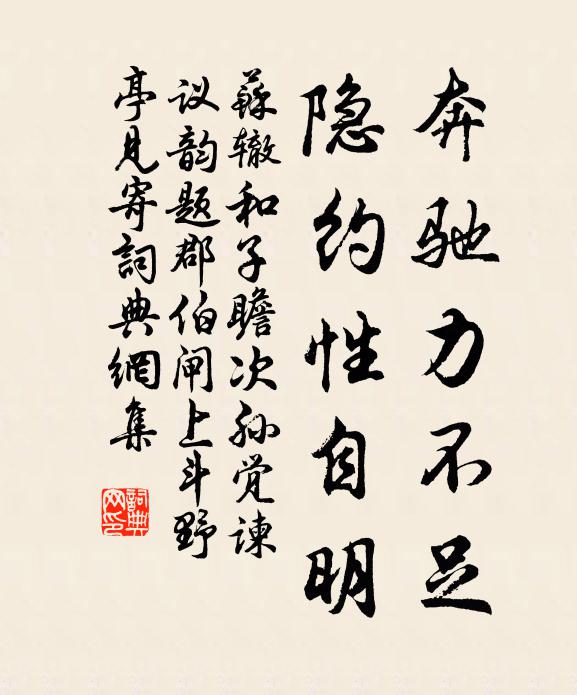 奔驰力不足
隐约性自明
蘇辙和子瞻次孙觉谏
议韵题郡伯闸上斗野
亭见寄詞典網集
詞典网印